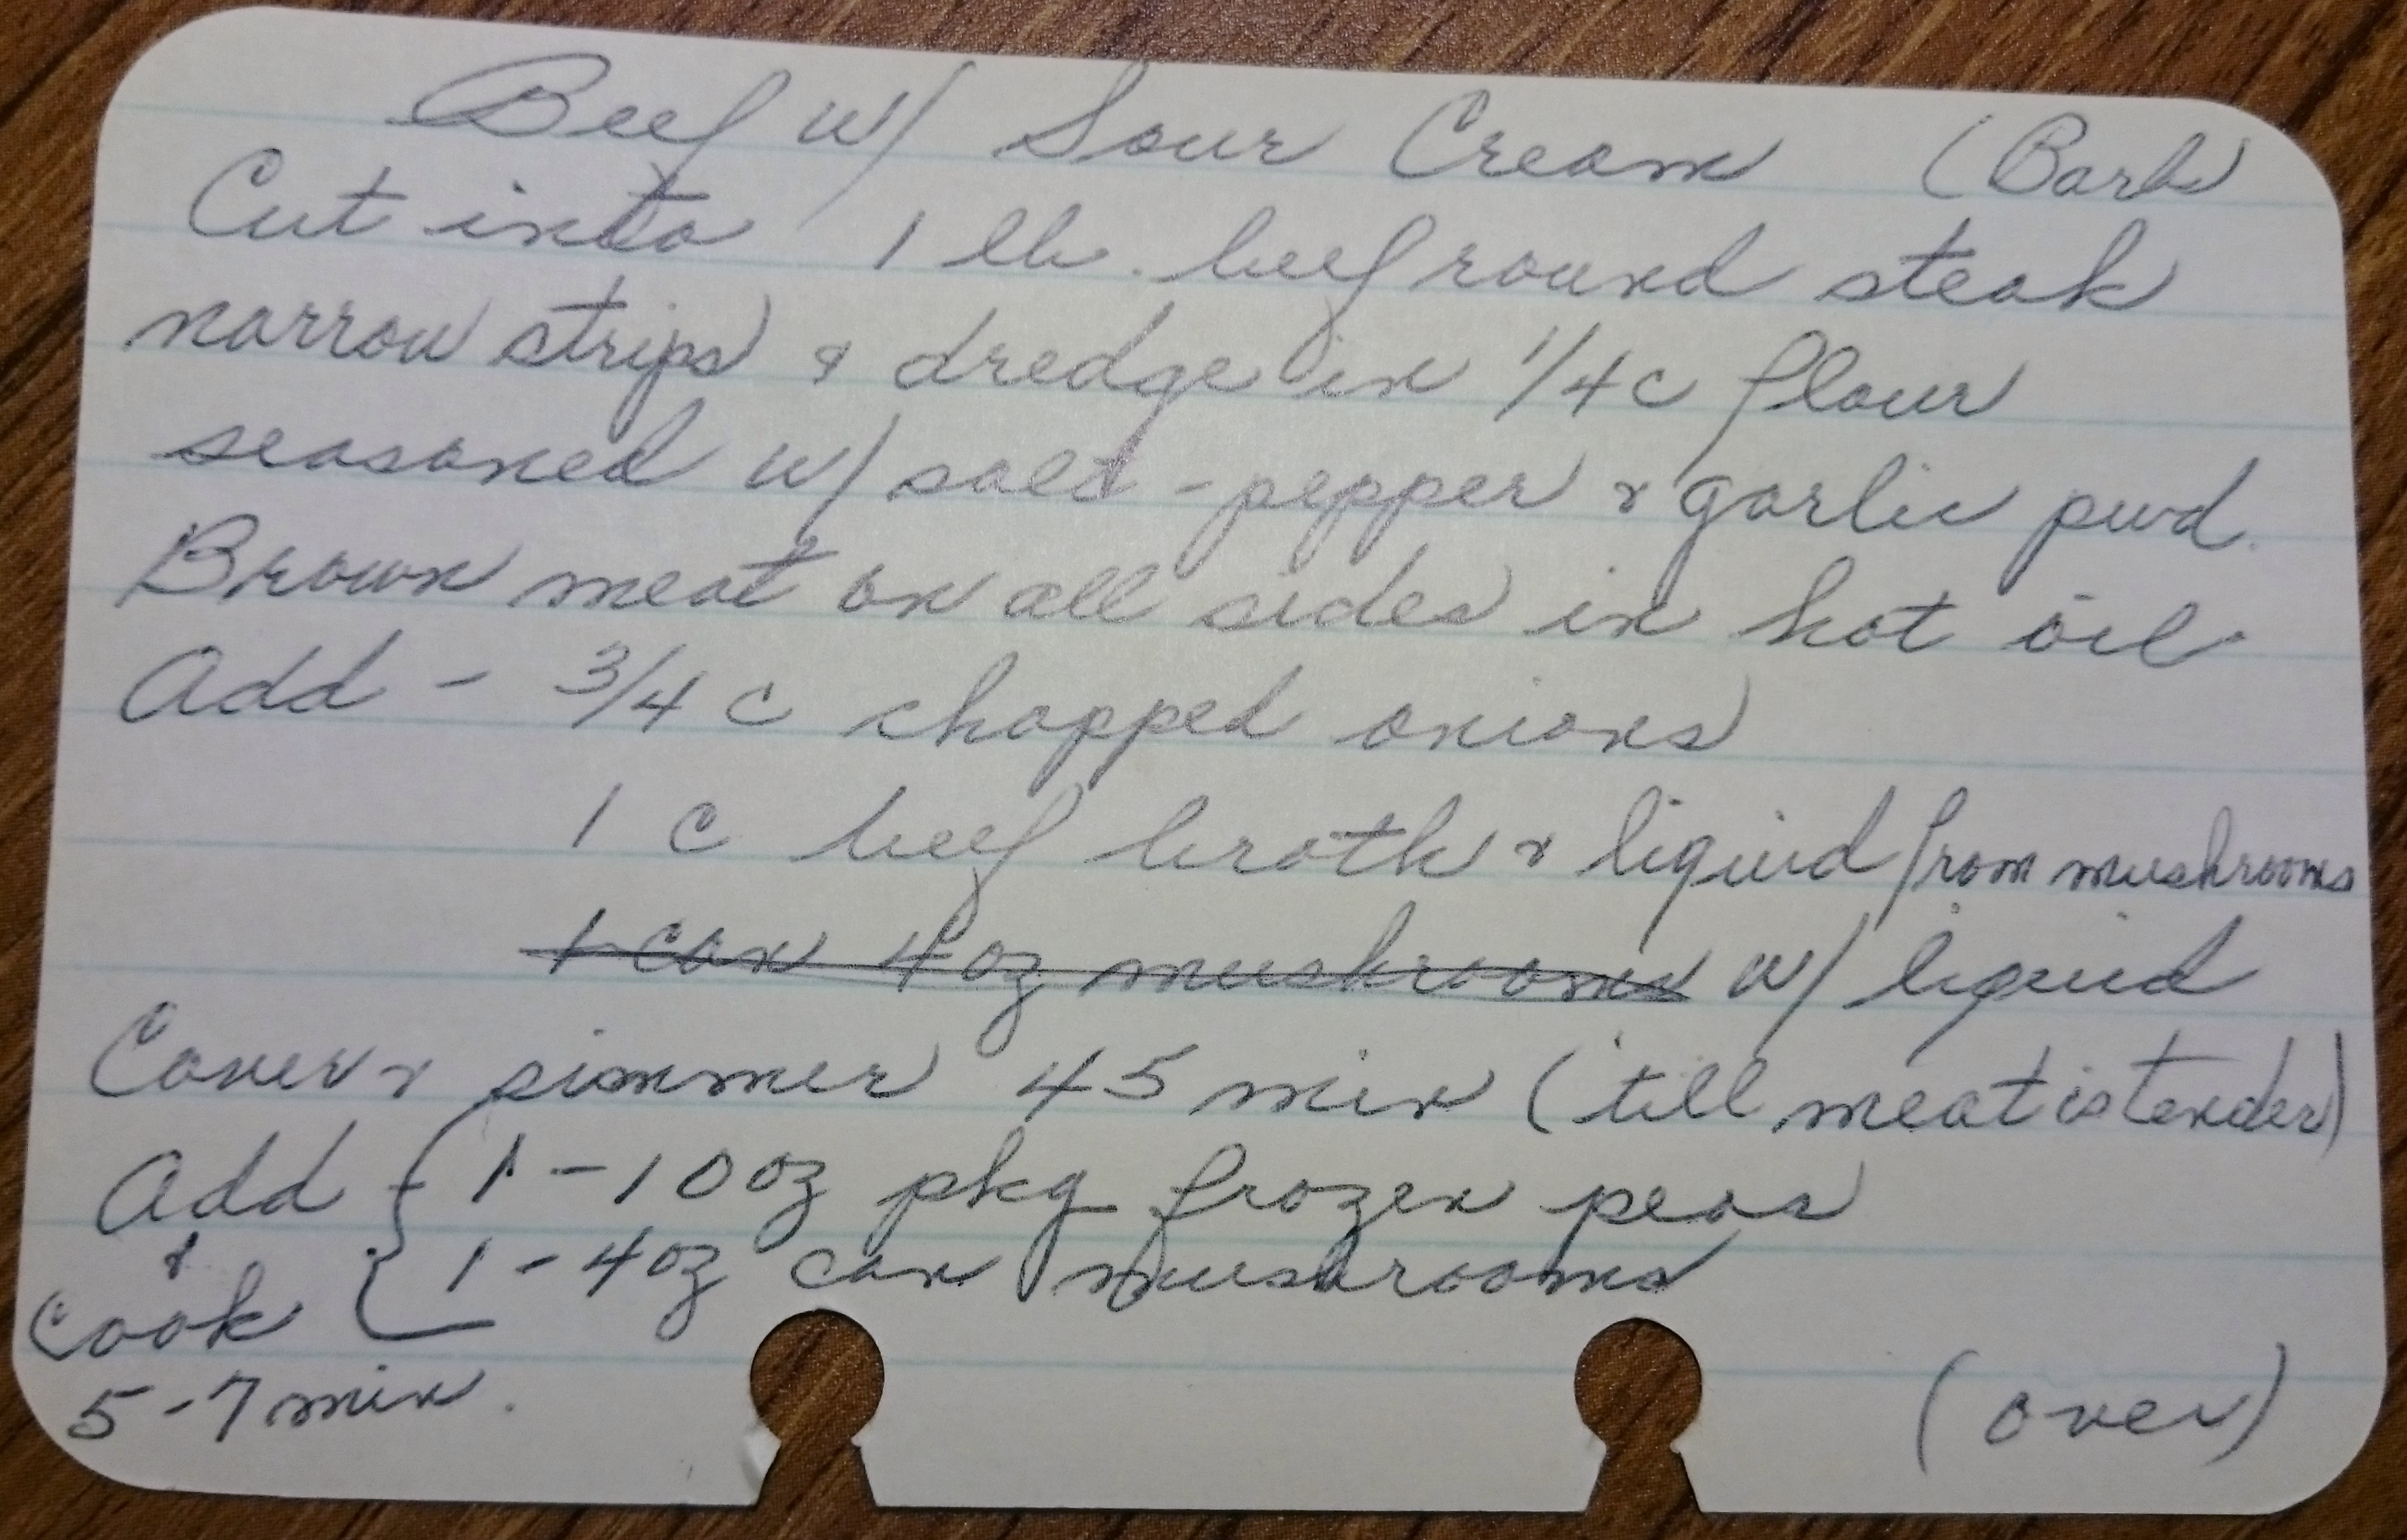 Beef w/ Sour Cream (Barb)
Cut into 1 lb. beef round steak
narrow strips & dredge in 1/4 c flour
seasoned w/ salt - pepper & garlic pwd.
Brown meat on all sides in hot oil
Add - 3/4 c chopped onions
1 c beef broth & liquid from mushrooms
1 can 4 oz mushrooms w/ liquid
Cover & simmer 45 min ('till meat is tender)
Add { 1 - 10 oz pkg frozen peas
& { 1 - 4 oz can mushrooms
cook
5-7 min.
(over)